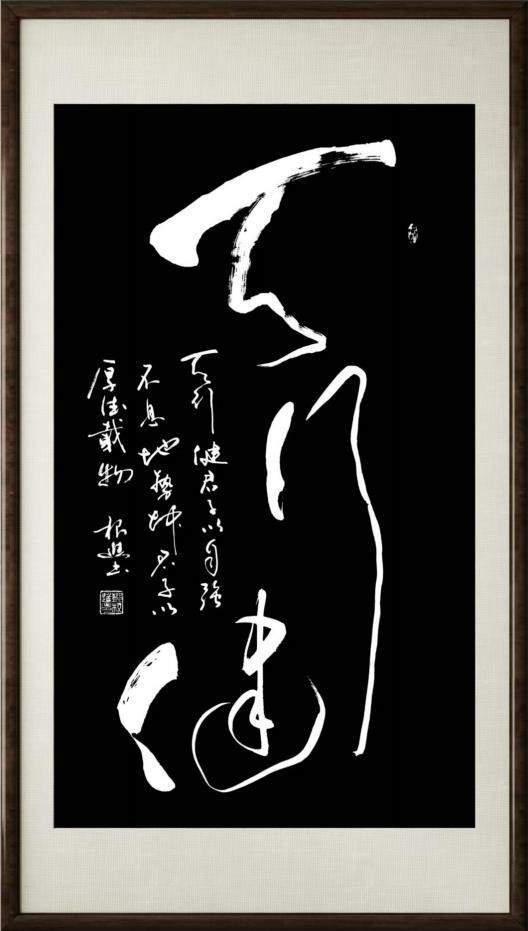 天行健
天行健君子以自强
不息地勢坤君子以
厚德載物 根书